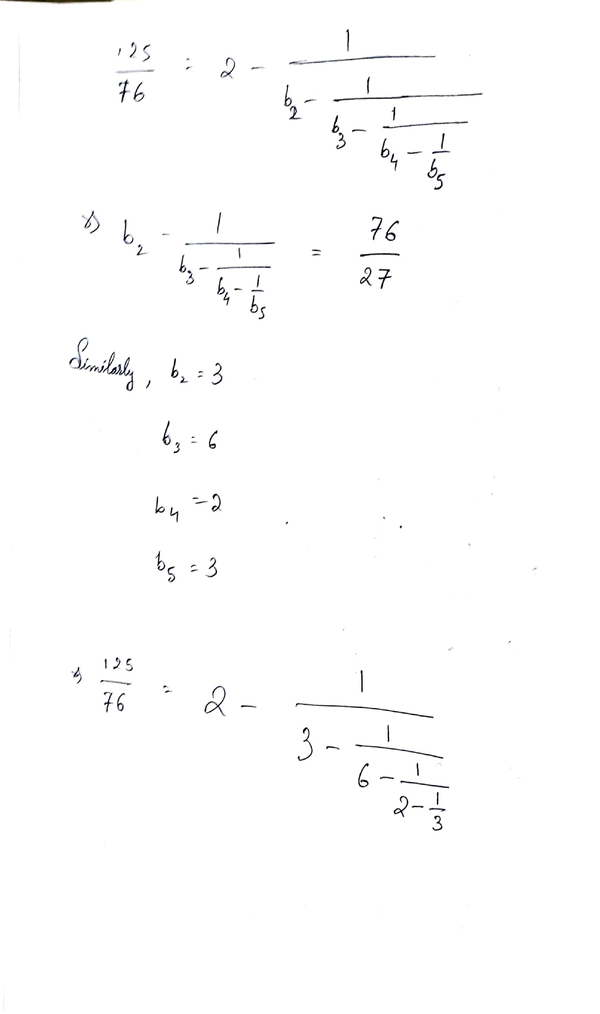 125/76 = 2 - 1/(b₂ - 1/(b₃ - 1/(b₄ - 1/b₅)))
⇒ b₂ - 1/(b₃ - 1/(b₄ - 1/b₅)) = 76/27
Similarly, b₂ = 3
b₃ = 6
b₄ = 2
b₅ = 3
⇒ 125/76 = 2 - 1/(3 - 1/(6 - 1/(2 - 1/3)))